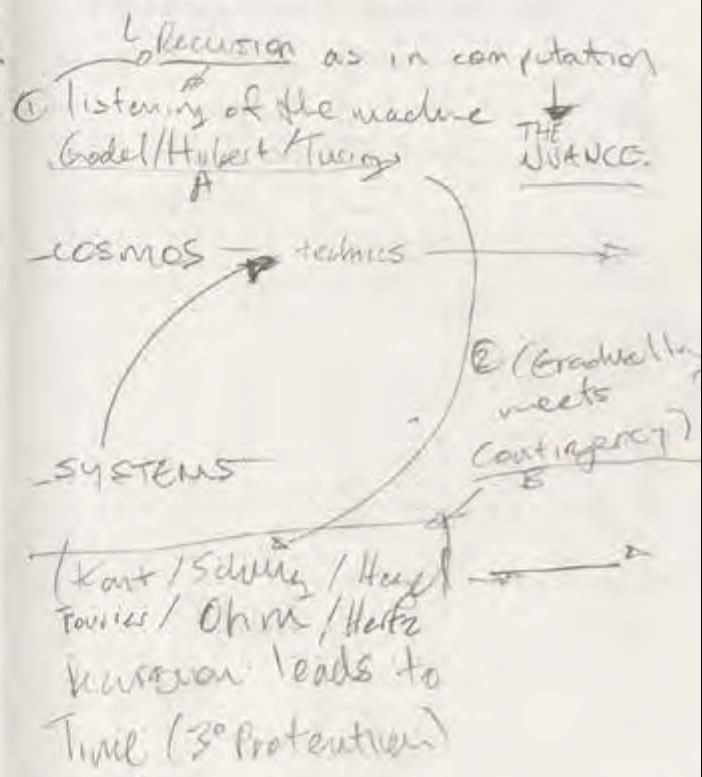 Recursion as in computation
① listening of the machine
THE
NUANCE.
Godel/Hilbert/Turing
A
COSMOS — technics
② (Gradually
meets
Contingency)
B
SYSTEMS
(Kant / Schelling / Hegel
Fourier / Ohm / Hertz
leads to
Time (3° Protention)